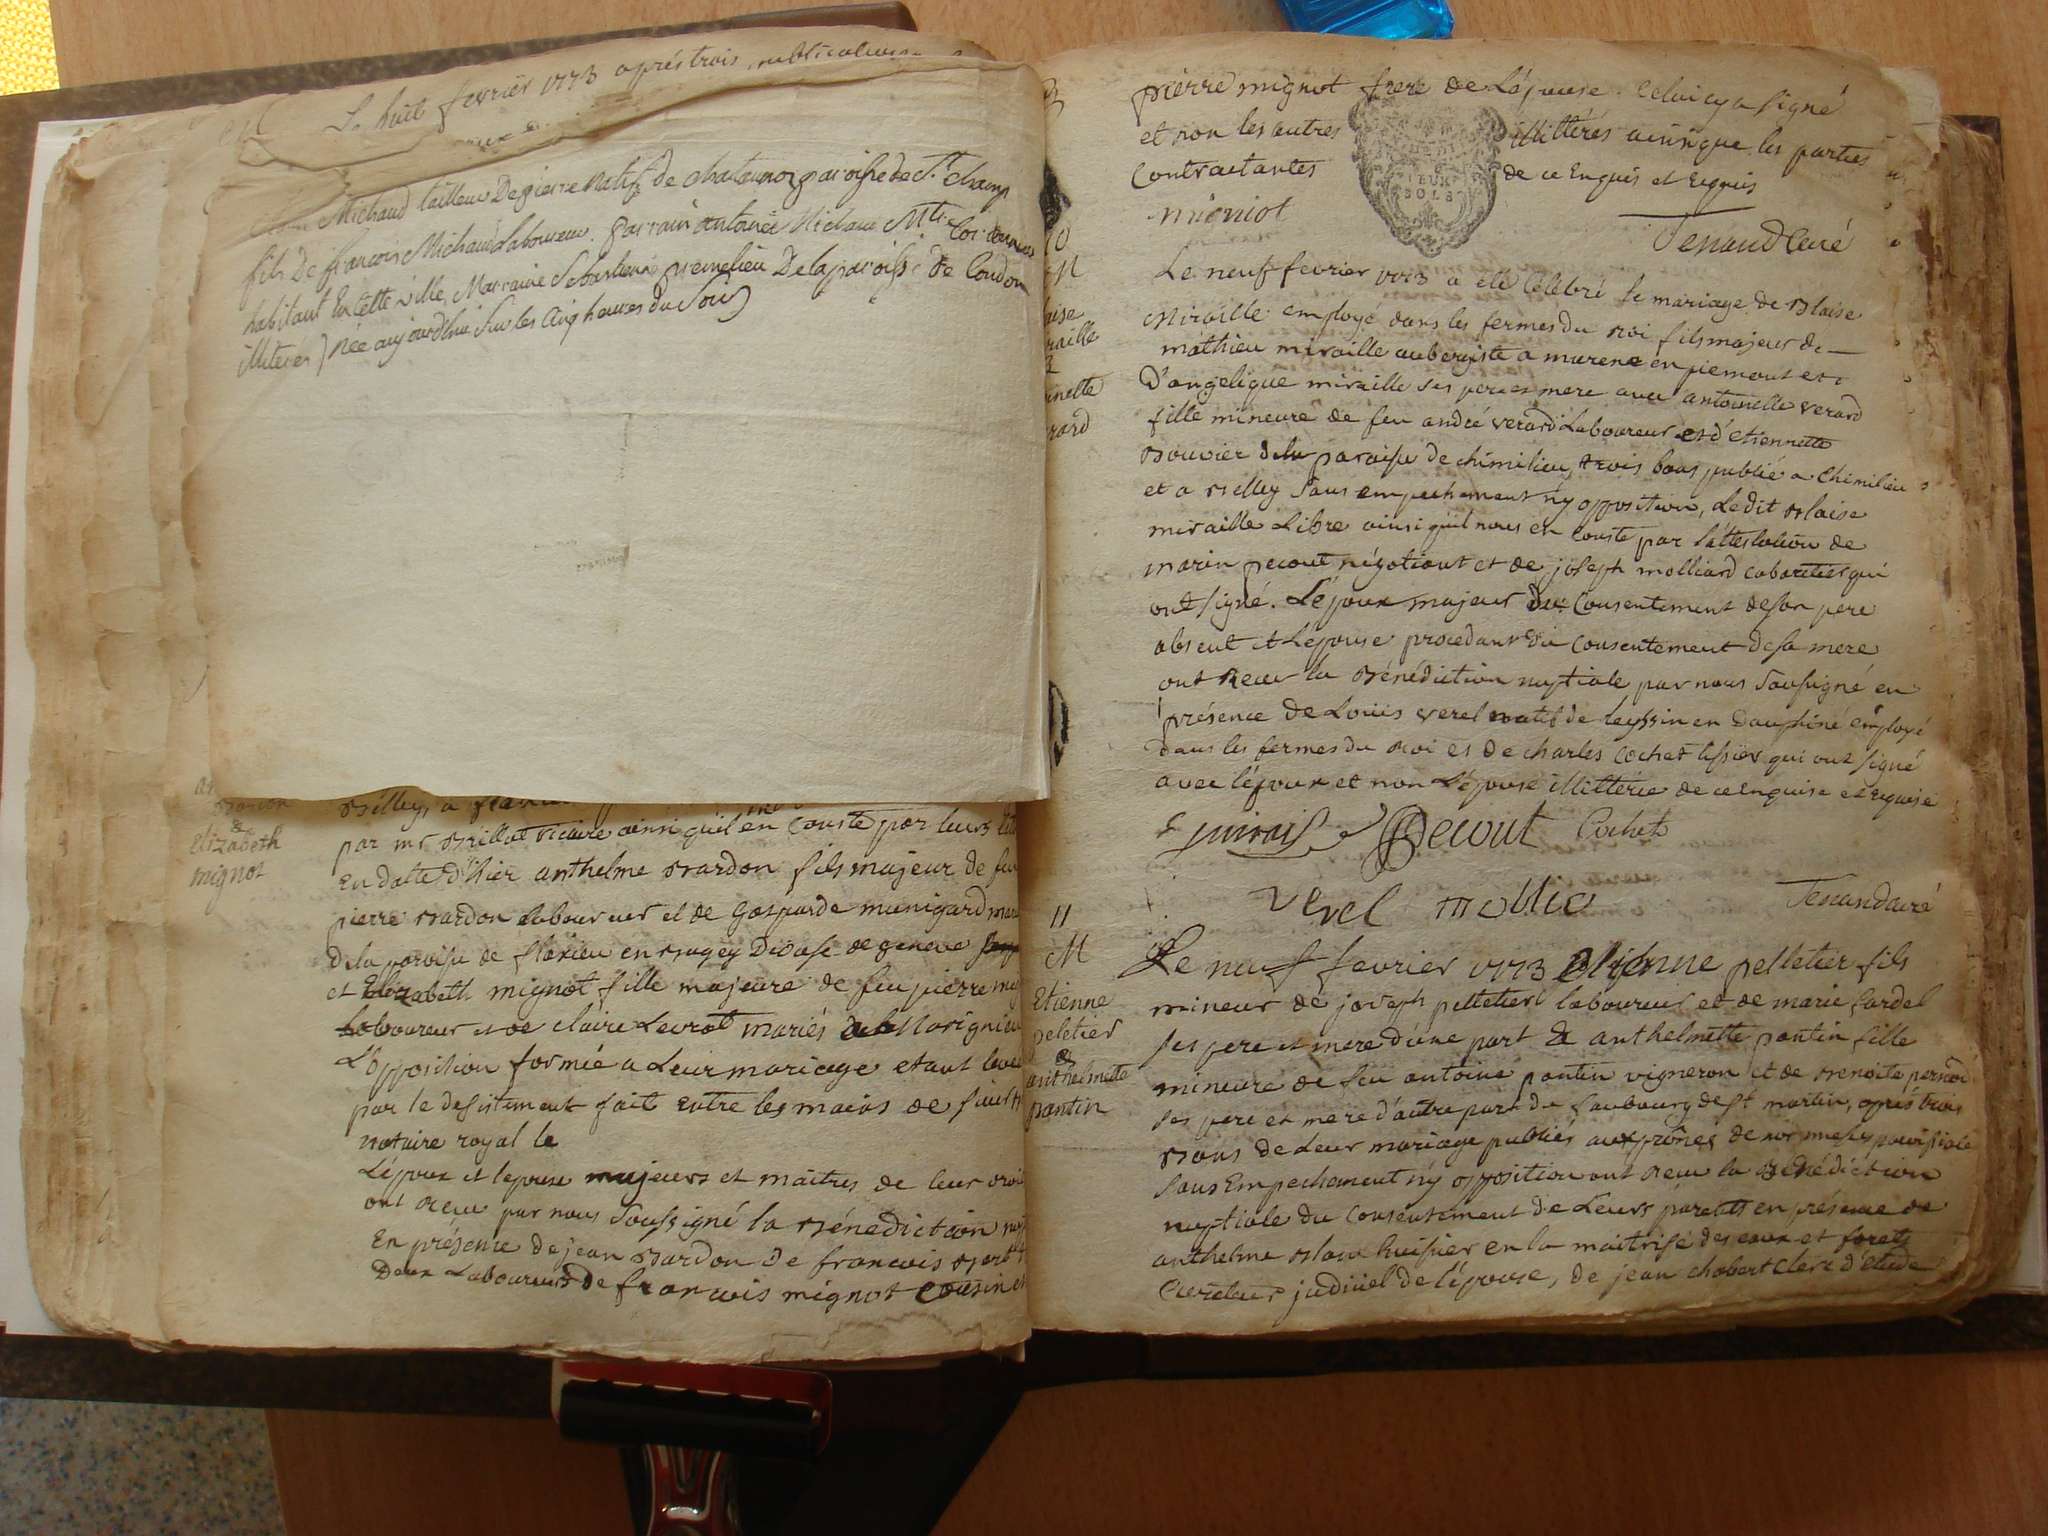 Le huit fevrier 1773 aprés trois publications
Michaud tailleur De pierre Natif de chataunoz paroisse de St. champ
fils De francois Michaud Laboureur. parrain antoine Michaud
habitant En cette ville, Marraine Sebastienne De la paroisse de Condon
illiteré) Née aujourdhui Sur les cinq heures du Soir
Bardon
&
elizabeth
mignot
Belley, a
par mr Brillat vicaire ainsi quil en conste par leurs
En datte d'hier anthelme Bardon fils majeur de feu
pierre Bardon Laboureur et de Gasparde munigard
De la paroisse de flaxieu en Bugey Diocese de geneve
et Elizabeth mignot fille majeure de feu pierre
Laboureur et de claire Levrat mariés de
L'opposition formée a Leur mariage etant levée
par le desistement fait entre les mains de
notaire royal le
L'époux et lepouse majeurs et maitres de leur
ont Recu par nous Soussigné la Bénédiction
En présence de jean Bardon De francois
Deux Laboureurs de francois mignot cousin
pierre mignot frere de L'épouse. Celui cy a signé
et non les autres illitterés ainsi que les parties
contractantes de ce Enquis et Requis
DEUX
SOLS
migniot
Tenand Curé
10
M
Le neuf fevrier 1773 a eté Célébré le mariage de Blaise
Miraille employé dans les fermes du Roi fils majeur de
mathieu miraille aubergiste a murene en piemont et
D'angelique miraille ses pere et mere avec antoinette verard
fille mineure de feu andré verard Laboureur et d'etiennette
Bouvier de la paroisse de chimilieu, trois bans publié a Chimilieu
et a Belley Sans empechement n'y opposition, Ledit Blaise
miraille Libre ainsi quil nous en Conste par l'attestation de
marin pecout négotiant et de joseph molliard cabaretier qui
ont signé. L'époux majeur du Consentement de son pere
absent et L'épouse procedant du Consentement de sa mere
ont Recu la Bénédiction nuptiale par nous Soussigné en
présence de Louis verel natif de leyssin en Dauphiné employé
dans les fermes du Roi et de charles cochet tissier qui ont signé
avec l'époux et non L'épouse illitterée de ce enquise et Requise
Pecout Cochet
verel
Tenand curé
11
M
Etienne
peletier
&
anthelmette
pantin
Le neuf fevrier 1773 Etienne pelletier fils
mineur de joseph pelletier laboureur et de marie Cardel
ses pere et mere d'une part & anthelmette pantin fille
mineure de feu antoine pantin vigneron et de Benoite
ses pere et mere d'autre part du faubourg de St martin, aprés trois
Bans de Leur mariage publiés aux prônes de nos messes paroissiale
Sans Empechement n'y opposition ont Recu la Bénédiction
nuptiale du Consentement de Leurs parents en présence de
anthelme huissier en la maitrise des eaux et forets
Curateur judiciel de l'épouse, de jean chabert clerc d'étude